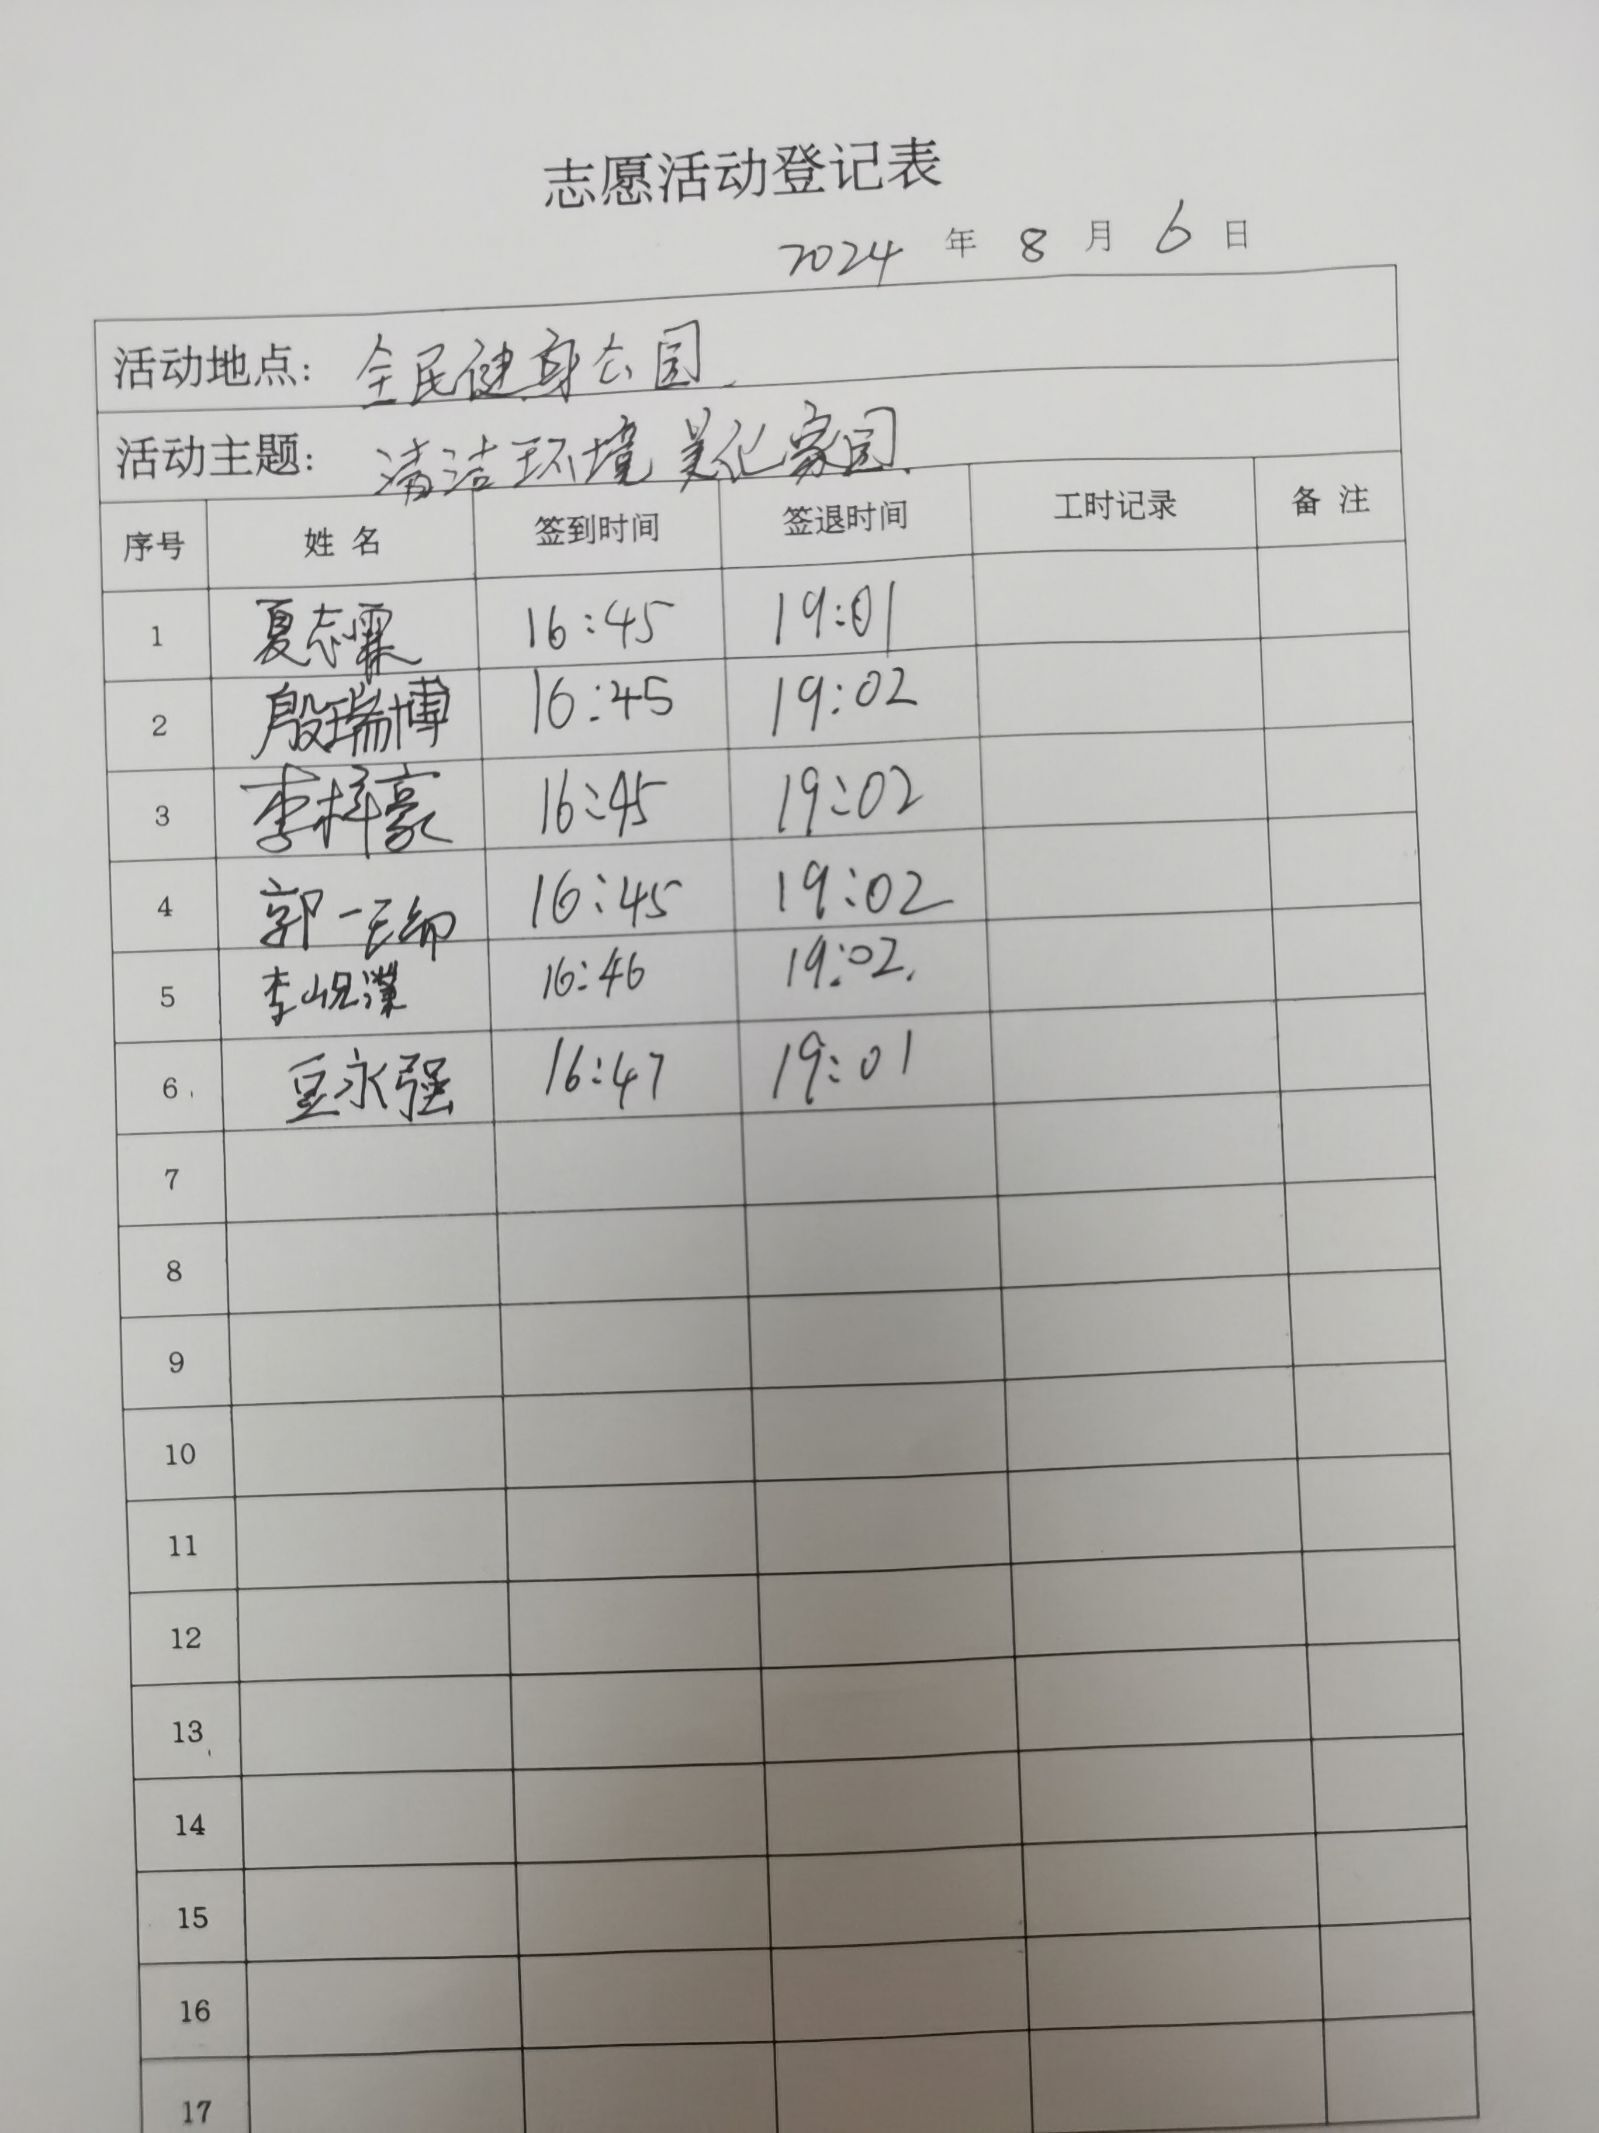 志愿活动登记表
2024 年 8 月 6 日
活动地点: 全民健身公园.
活动主题: 清洁环境 美化家园.
序号 姓 名 签到时间 签退时间 工时记录 备 注
1 夏志霖 16:45 19:01
2 殷瑞博 16:45 19:02
3 李梓豪 16:45 19:02
4 郭一瑜 16:45 19:02
5 李岘濮 16:46 19:02.
6 豆永强 16:47 19:01
7
8
9
10
11
12
13
14
15
16
17